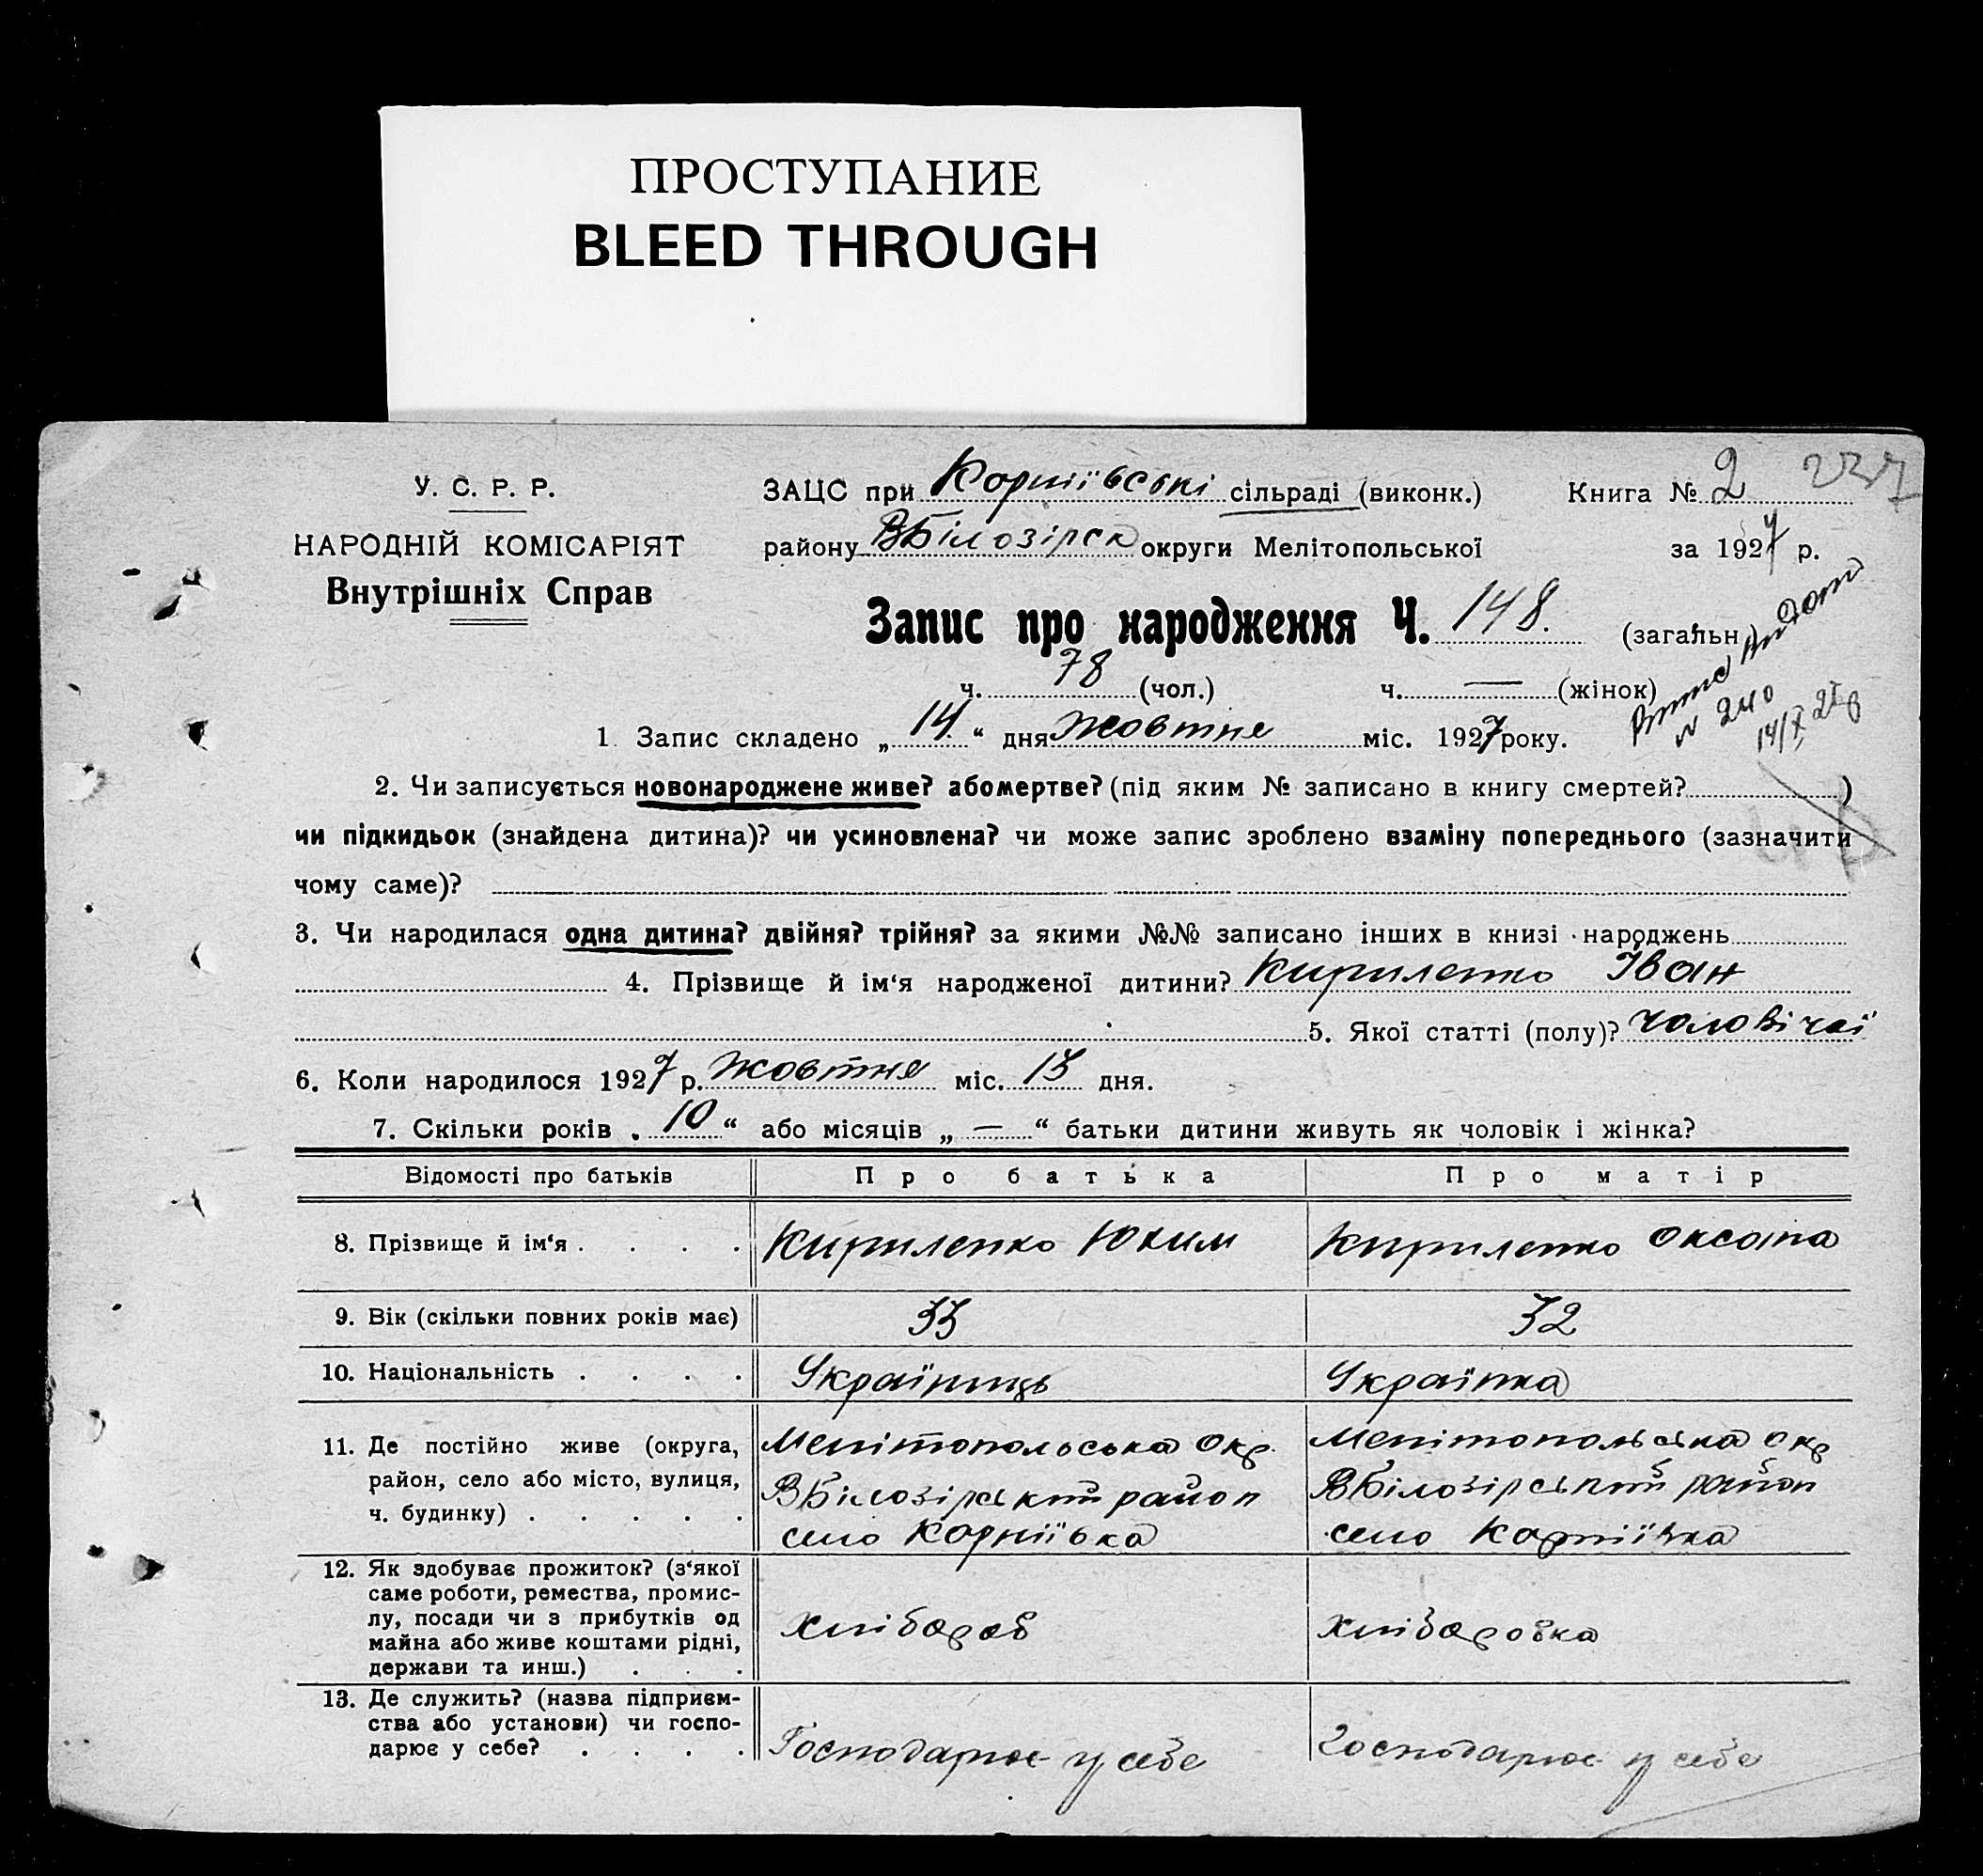 ПРОСТУПАНИЕ
BLEED THROUGH
У. С. Р. Р.
НАРОДНІЙ КОМІСАРІЯТ
Внутрішніх Справ
ЗАЦС при Корніївські сільраді (виконк.) Книга № 2 237
району ВБілозірск округи Мелітопольської за 1927 р.
Запис про народження Ч. 148. (загальн.)
ч. 78 (чол.) ч. — (жінок)
№ 240
14/X 27р
1. Запис складено „ 14 “ дня жовтня міс. 1927 року.
2. Чи записується новонароджене живе? або мертве? (під яким № записано в книгу смертей? )
чи підкидьок (знайдена дитина)? чи усиновлена? чи може запис зроблено взаміну попереднього (зазначити
чому саме)?
3. Чи народилася одна дитина? двійня? трійня? за якими №№ записано інших в книзі народжень
4. Прізвище й ім‘я народженої дитини? Кириленко Іван
5. Якої статті (полу)? чоловічої
6. Коли народилося 1927 р. жовтня міс. 13 дня.
7. Скільки років „ 10 “ або місяців „ — “ батьки дитини живуть як чоловік і жінка?
Відомості про батьків Про батька Про матір
8. Прізвище й ім‘я . . . . Кириленко Юхим Кириленко Оксана
9. Вік (скільки повних років має) 33 32
10. Національність . . . . Українець Українка
11. Де постійно живе (округа, Мелітопольська окр. Мелітопольська окр
район, село або місто, вулиця, ВБілозірський район ВБілозірський район
ч. будинку) . . . . . село Корніївка село Корніївка
12. Як здобуває прожиток? (з‘якої
саме роботи, ремества, промис-
лу, посади чи з прибутків од хлібороб хліборобка
майна або живе коштами рідні,
держави та инш.) . . .
13. Де служить? (назва підприєм-
ства або установи) чи госпо-
дарює у себе? . . . . Господарює у себе Господарює у себе